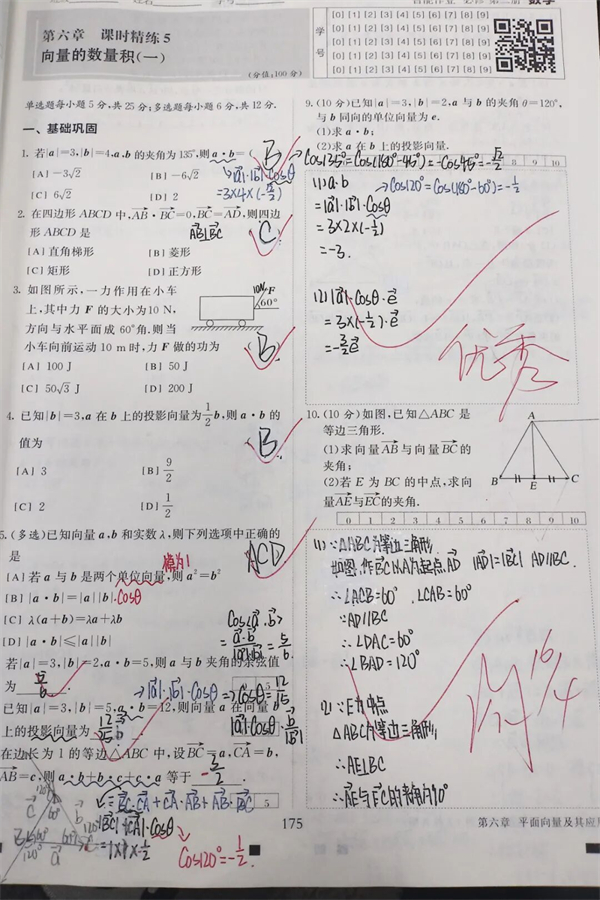 第六章 课时精练5
向量的数量积(一)
(分值:100分)
学号
[0] [1] [2] [3] [4] [5] [6] [7] [8] [9]
[0] [1] [2] [3] [4] [5] [6] [7] [8] [9]
[0] [1] [2] [3] [4] [5] [6] [7] [8] [9]
[0] [1] [2] [3] [4] [5] [6] [7] [8] [9]
[0] [1] [2] [3] [4] [5] [6] [7] [8] [9]
单选题每小题5分,共25分;多选题每小题6分,共12分.
一、基础巩固
1. 若|a|=3,|b|=4,a,b的夹角为135°,则a·b=(
B
[A] -3√2
[B] -6√2
[C] 6√2
[D] 2
|a|·|b|·cosθ
=3×4×(-√2/2)
cos135°=cos(180°-45°)=-cos45°=-√2/2
2. 在四边形ABCD中,AB·BC=0,BC=AD,则四边
形ABCD是
AB⊥BC
C
[A] 直角梯形
[B] 菱形
[C] 矩形
[D] 正方形
3. 如图所示,一力作用在小车
上,其中力F的大小为10 N,
方向与水平面成60°角.则当
小车向前运动10 m时,力F做的功为
10N
F
60°
(B)
[A] 100 J
[B] 50 J
[C] 50√3 J
[D] 200 J
4. 已知|b|=3,a在b上的投影向量为1/2b,则a·b的
值为
(B)
[A] 3
[B] 9/2
[C] 2
[D] 1/2
5. (多选)已知向量a,b和实数λ,则下列选项中正确的
是
ACD
[A] 若a与b是两个单位向量,则a²=b²
模为1
[B] |a·b|=|a||b|
·cosθ
[C] λ(a+b)=λa+λb
[D] |a·b|≤|a||b|
cos<a,b>
=a·b/|a||b|=5/6
若|a|=3,|b|=2,a·b=5,则a与b夹角的余弦值
为 5/6 .
|a|·|b|·cosθ
cosθ=12/15
已知|a|=3,|b|=5,a·b=12,则向量a在向量b
上的投影向量为
|a|cosθ·b/|b|
在边长为1的等边△ABC中,设BC=a,CA=b,
AB=c,则a·b+b·c+c·a等于 -3/2 .
=BC·CA+CA·AB+AB·BC
|BC|·|CA|·cosθ
=1×1×1/2
cos120°=-1/2.
9. (10分)已知|a|=3,|b|=2,a与b的夹角θ=120°,
与b同向的单位向量为e.
(1)求a·b;
(2)求a在b上的投影向量.
8 9 10
(1) a·b
→cos120°=cos(180°-60°)=-1/2
=|a|·|b|·cosθ
=3×2×(-1/2)
=-3.
(2) |a|·cosθ·e
=3×(-1/2)·e
=-3/2e
优秀
10. (10分)如图,已知△ABC是
等边三角形.
(1)求向量AB与向量BC的
夹角;
(2)若E为BC的中点,求向
量AE与EC的夹角.
A
B E C
0 1 2 3 4 5 6 7 8 9 10
(1) ∵△ABC为等边三角形
|AD|=|BC| AD∥BC.
∴∠ACB=60° ∠CAB=60°
∵AD∥BC
∴∠DAC=60°
∴∠BAD=120°
(2) ∵E为中点
△ABC为等边三角形
∴AE⊥BC
175
第六章 平面向量及其应